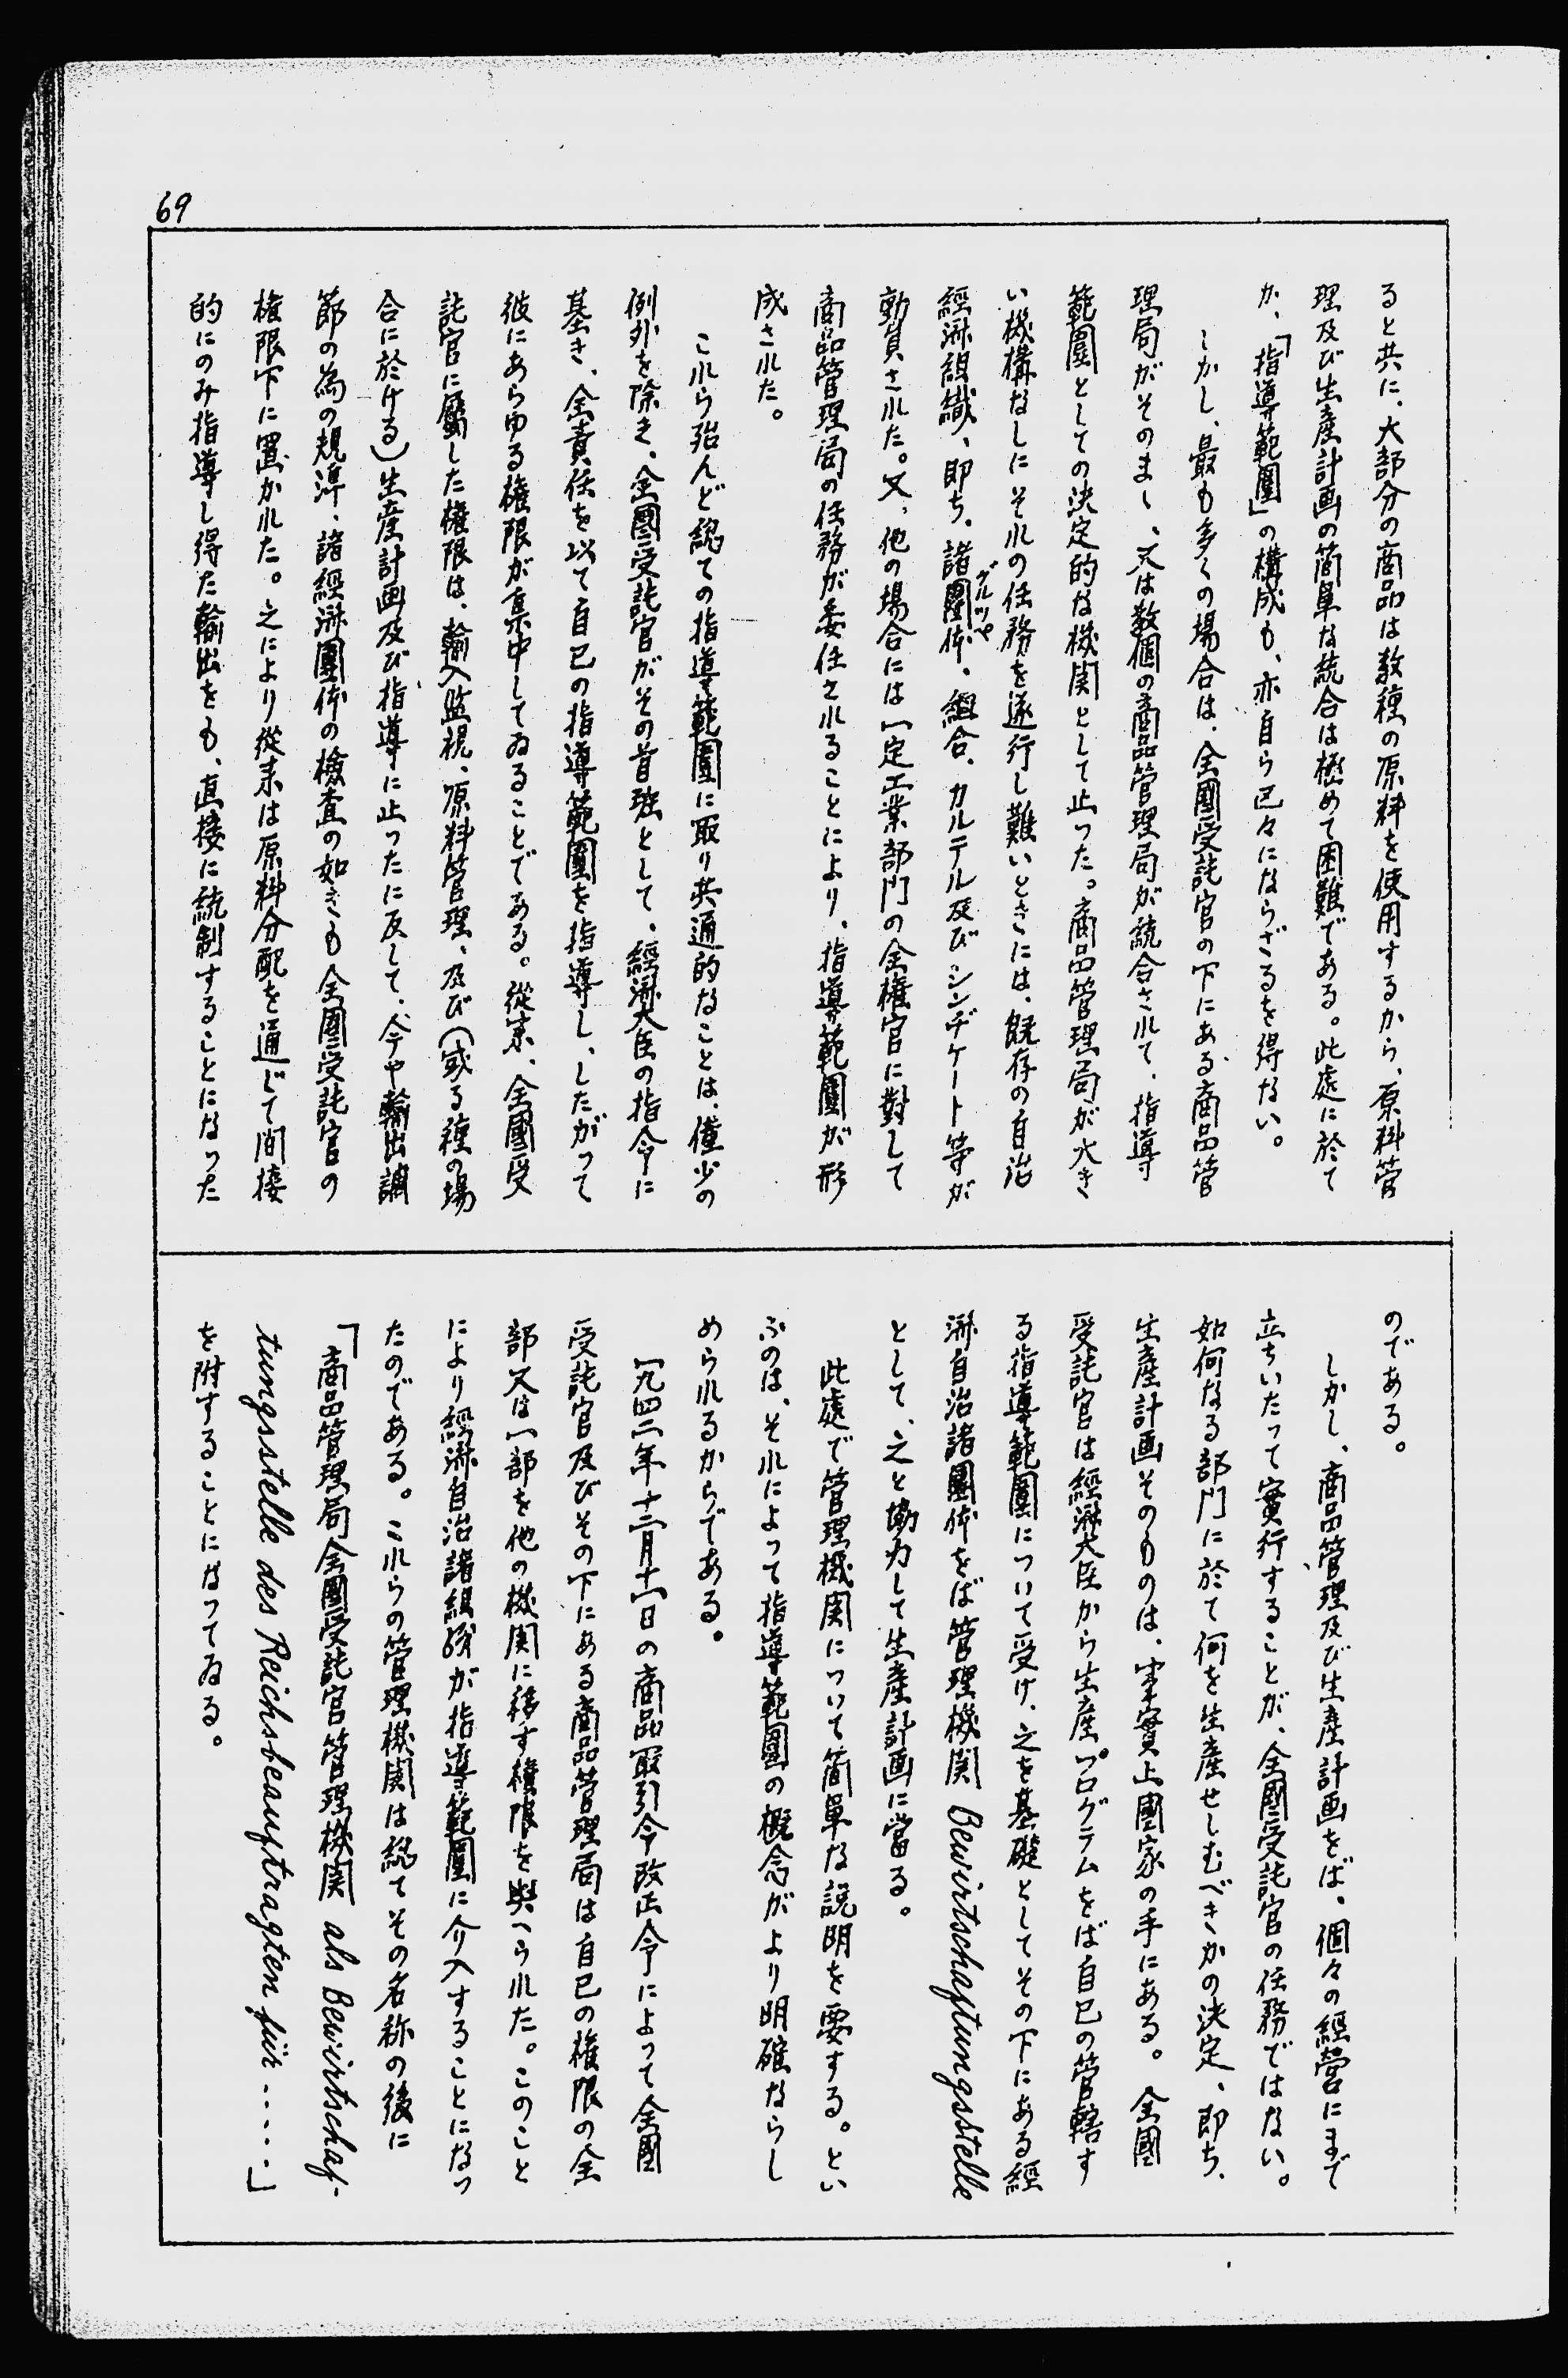 69
ると共に、大部分の商品は数種の原料を使用するから、原料管
理及び生産計画の簡単な統合は極めて困難である。此處に於て
か、「指導範圍」の構成も、亦自ら区々にならざるを得ない。
しかし、最も多くの場合は、全國受託官の下にある商品管
理局がそのまゝ、又は数個の商品管理局が統合されて、指導
範圍としての決定的な機関として止った。商品管理局が大き
い機構なしにそれの任務を遂行し難いときには、既存の自治
經済組織、即ち、諸團体、組合、カルテル及びシンヂケート等が
グルッペ
動員された。又、他の場合には一定工業部門の全権官に對して
商品管理局の任務が委任されることにより、指導範圍が形
成された。
これら殆んど総ての指導範圍に取り共通的なことは、僅少の
例外を除き、全國受託官がその首班として、經済大臣の指令に
基き、全責任を以て自己の指導範圍を指導し、したがって
彼にあらゆる権限が集中してゐることである。從来、全國受
託官に屬した権限は、輸入監視、原料管理、及び(或る種の場
合に於ける)生産計画及び指導に止ったに反して、今や輸出調
節の為の規準、諸經済團体の檢査の如きも全國受託官の
権限下に置かれた。之により從来は原料分配を通じて間接
的にのみ指導し得た輸出をも、直接に統制することになった
のである。
しかし、商品管理及び生産計画をば、個々の經営にまで
立ちいたって實行することが、全國受託官の任務ではない。
如何なる部門に於て何を生産せしむべきかの決定、即ち、
生産計画そのものは、事實上國家の手にある。全國
受託官は經済大臣から生産プログラムをば自己の管轄す
る指導範圍について受け、之を基礎としてその下にある經
済自治諸團体をば管理機関 Bewirtschaftungsstelle
として、之と協力して生産計画に當る。
此處で管理機関について簡単な説明を要する。とい
ふのは、それによって指導範圍の概念がより明確ならし
められるからである。
一九四二年十二月十一日の商品取引令改正令によって全國
受託官及びその下にある商品管理局は自己の権限の全
部又は一部を他の機関に移す権限を與へられた。このこと
により經済自治諸組織が指導範圍に介入することになっ
たのである。これらの管理機関は総てその名称の後に
「商品管理局全國受託官管理機関 als Bewirtschaf-
tungsstelle des Reichsbeauftragten für ......」
を附することになってゐる。